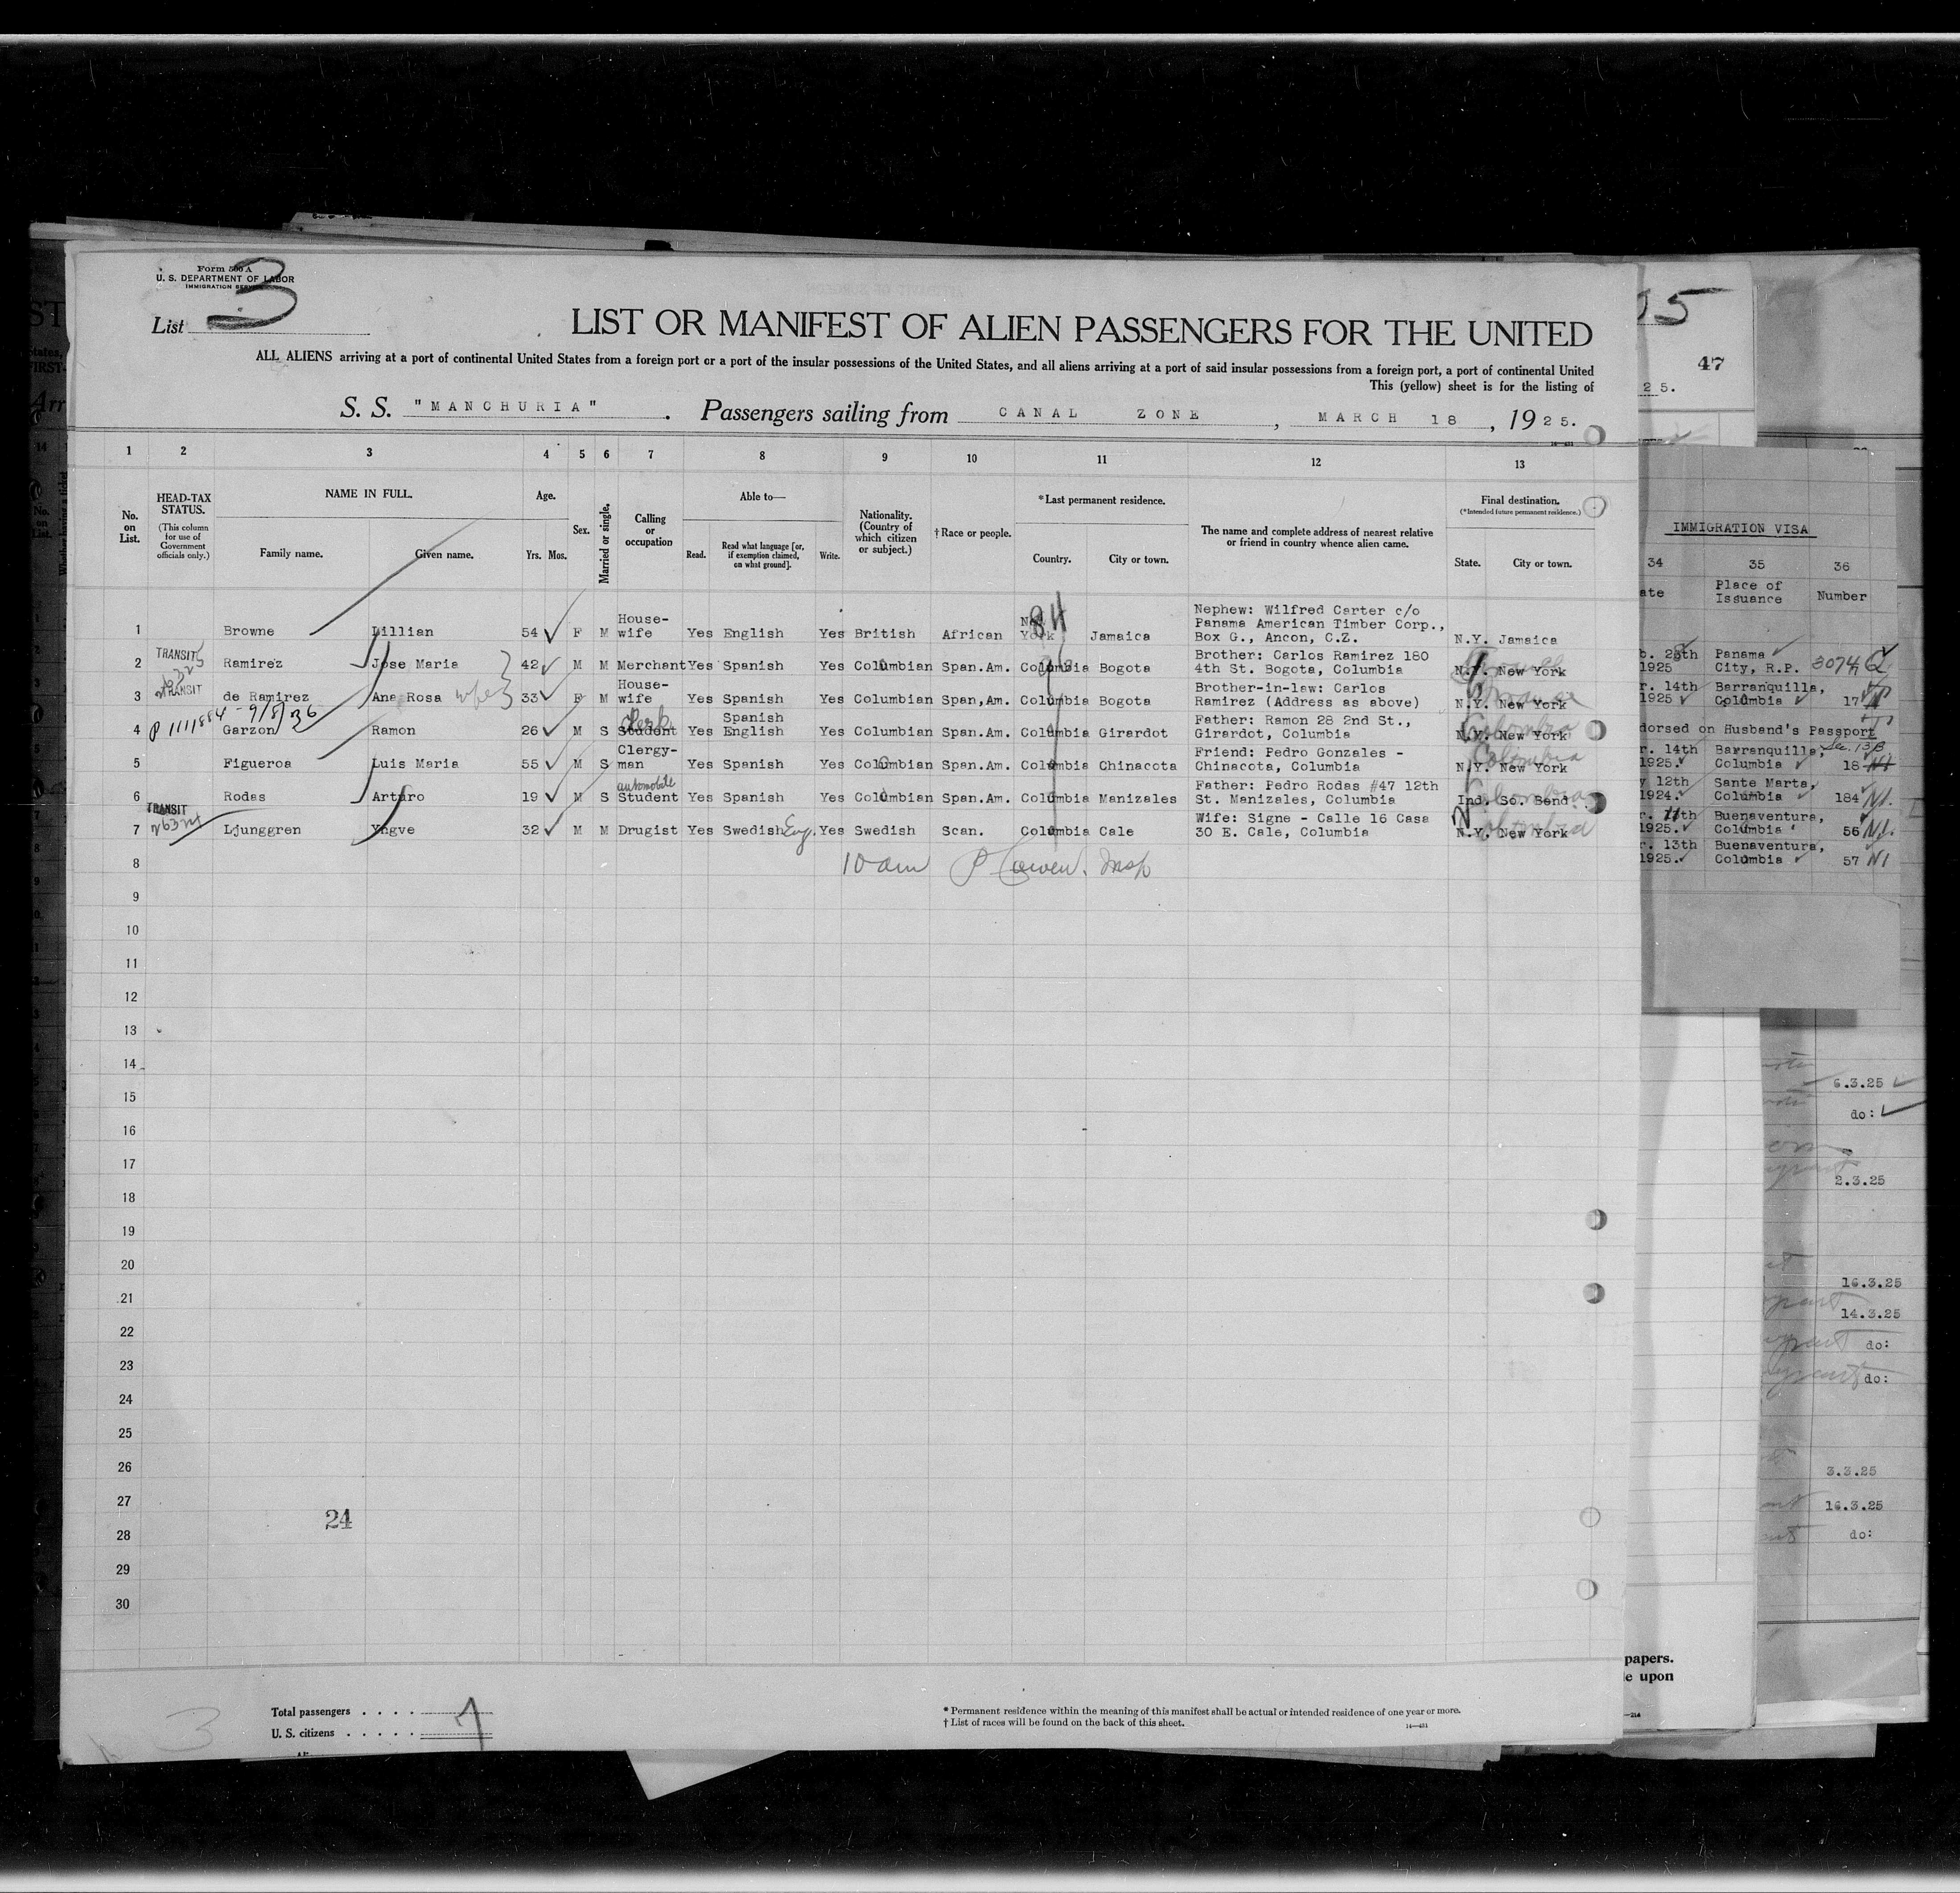 Form 500 A
U. S. DEPARTMENT OF LABOR
IMMIGRATION SERVICE
List 3
LIST OR MANIFEST OF ALIEN PASSENGERS FOR THE UNITED
ALL ALIENS arriving at a port of continental United States from a foreign port or a port of the insular possessions of the United States, and all aliens arriving at a port of said insular possessions from a foreign port, a port of continental United
This (yellow) sheet is for the listing of
S. S. "MANCHURIA". Passengers sailing from CANAL ZONE, MARCH 18, 1925.
1 2 3 4 5 6 7 8 9 10 11 12 13
No. on List.
HEAD-TAX STATUS.
(This column for use of Government officials only.)
NAME IN FULL.
Family name. Given name.
Age.
Yrs. Mos.
Sex.
Married or single.
Calling or occupation
Able to—
Read. Read what language [or, if exemption claimed, on what ground]. Write.
Nationality. (Country of which citizen or subject.)
†Race or people.
*Last permanent residence.
Country. City or town.
The name and complete address of nearest relative or friend in country whence alien came.
Final destination.
(*Intended future permanent residence.)
State. City or town.
84
1 Browne Lillian 54 F M House-wife Yes English Yes British African New York Jamaica Nephew: Wilfred Carter c/o Panama American Timber Corp., Box G., Ancon, C.Z. N.Y. Jamaica
2 TRANSIT Ramirez Jose Maria 42 M M Merchant Yes Spanish Yes Columbian Span.Am. Columbia Bogota Brother: Carlos Ramirez 180 4th St. Bogota, Columbia N.Y. New York
3 TRANSIT de Ramirez Ana Rosa wife 33 F M House-wife Yes Spanish Yes Columbian Span.Am. Columbia Bogota Brother-in-law: Carlos Ramirez (Address as above) N.Y. New York
4 P 1111884 - 9/8/36 Garzon Ramon 26 M S Student Clerk Yes Spanish English Yes Columbian Span.Am. Columbia Girardot Father: Ramon 28 2nd St., Girardot, Columbia N.Y. New York
5 Figueroa Luis Maria 55 M S Clergy-man Yes Spanish Yes Columbian Span.Am. Columbia Chinacota Friend: Pedro Gonzales - Chinacota, Columbia N.Y. New York
6 Rodas Arturo 19 M S automobile Student Yes Spanish Yes Columbian Span.Am. Columbia Manizales Father: Pedro Rodas #47 12th St. Manizales, Columbia Ind. So. Bend.
7 TRANSIT Ljunggren Yngve 32 M M Drugist Yes Swedish Eng. Yes Swedish Scan. Columbia Cale Wife: Signe - Calle 16 Casa 30 E. Cale, Columbia N.Y. New York
8 10 am P Cowen. Insp
9
10
11
12
13
14
15
16
17
18
19
20
21
22
23
24
25
26
27
28
29
30
24
Total passengers . . . . 7
U. S. citizens . . . . .
3
* Permanent residence within the meaning of this manifest shall be actual or intended residence of one year or more.
† List of races will be found on the back of this sheet.
14—431
47
25.
IMMIGRATION VISA
34 35 36
ate Place of Issuance Number
b. 28th 1925 Panama City, R.P. 3074 Q
r. 14th 1925 Barranquilla, Columbia 17
dorsed on Husband's Passport
r. 14th 1925. Barranquilla, Columbia 18 Sec. 13B
y 12th 1924. Sante Marta, Columbia 184 N.I.
r. 11th 1925. Buenaventura, Columbia 56 N.I.
r. 13th 1925. Buenaventura, Columbia 57 NI
6.3.25
do:
2.3.25
16.3.25
14.3.25
do:
do:
3.3.25
16.3.25
do:
papers.
e upon